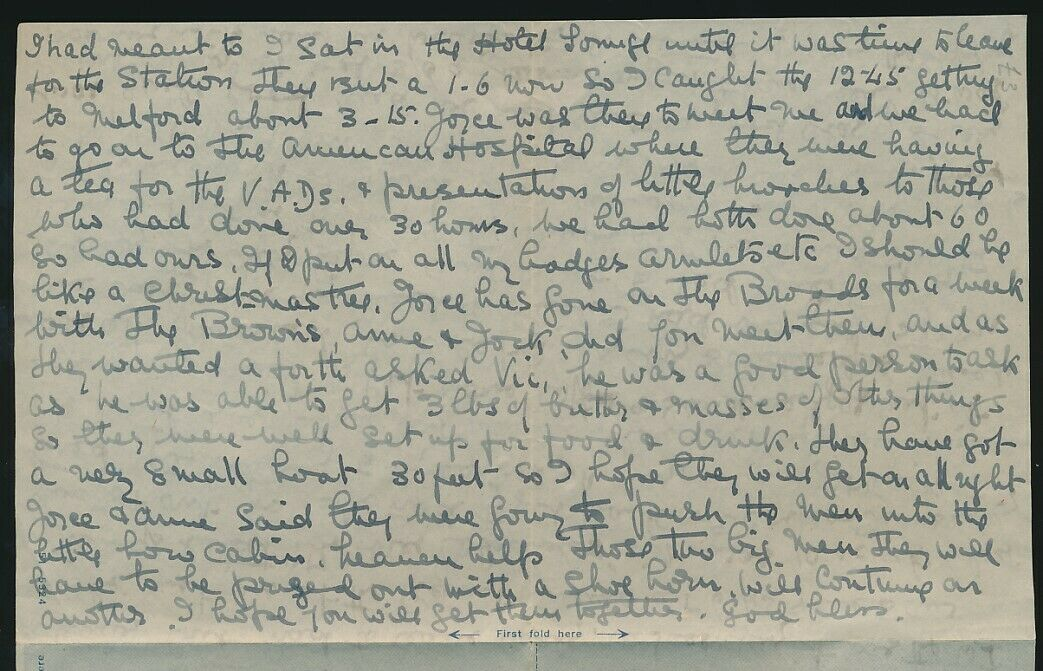 I had meant to I sat in the Hotel Lounge until it was time to leave
for the Station they put a 1-6 now so I caught the 12-45 getting
to Melford about 3-15. Joyce was there to meet me and we had
to go on to the American Hospital where they were having
a tea for the V.A.Ds. & presentation of little brooches to those
who had done over 30 hours, we had both done about 60
so had ours. If I put on all my badges armlets etc I should be
like a Christmas tree. Joyce has gone on the Broads for a week
with the Browns, Anne & Jock, did you meet them, and as
they wanted a forth asked Vic, he was a good person to ask
as he was able to get 3 lbs of butter & masses of other things
so they were well set up for food & drink. They have got
a very small boat 30 feet so I hope they will get on all right
Joyce & Anne said they were going to push the men into the
little bow cabin, heaven help those two big men they will
have to be prized out with a shoe horn. Will continue on
another. I hope you will get them together. God bless.
First fold here